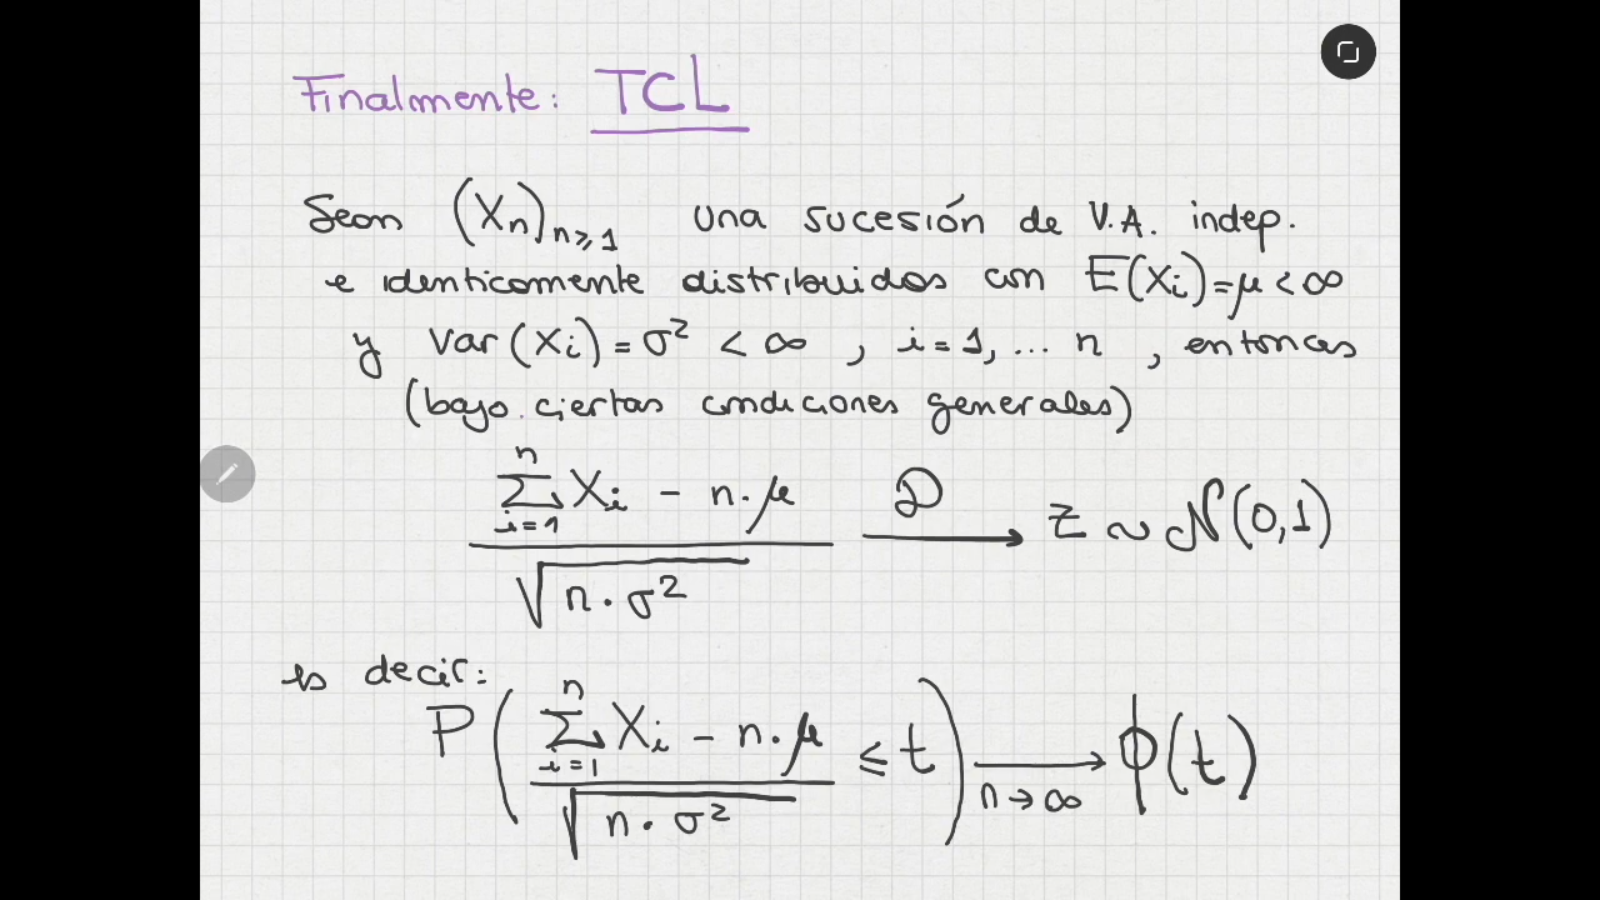 Finalmente: TCL
Sean (Xn)n≥1 una sucesión de V.A. indep.
e identicamente distribuidas con E(Xi)=μ<∞
y Var(Xi)=σ² < ∞ , i=1,... n , entonces
(bajo ciertas condiciones generales)
(∑_{i=1}^{n} Xi - n·μ) / √(n·σ²) →^D Z ~ N(0,1)
es decir:
P( (∑_{i=1}^{n} Xi - n·μ) / √(n·σ²) ≤ t ) →_{n→∞} ϕ(t)